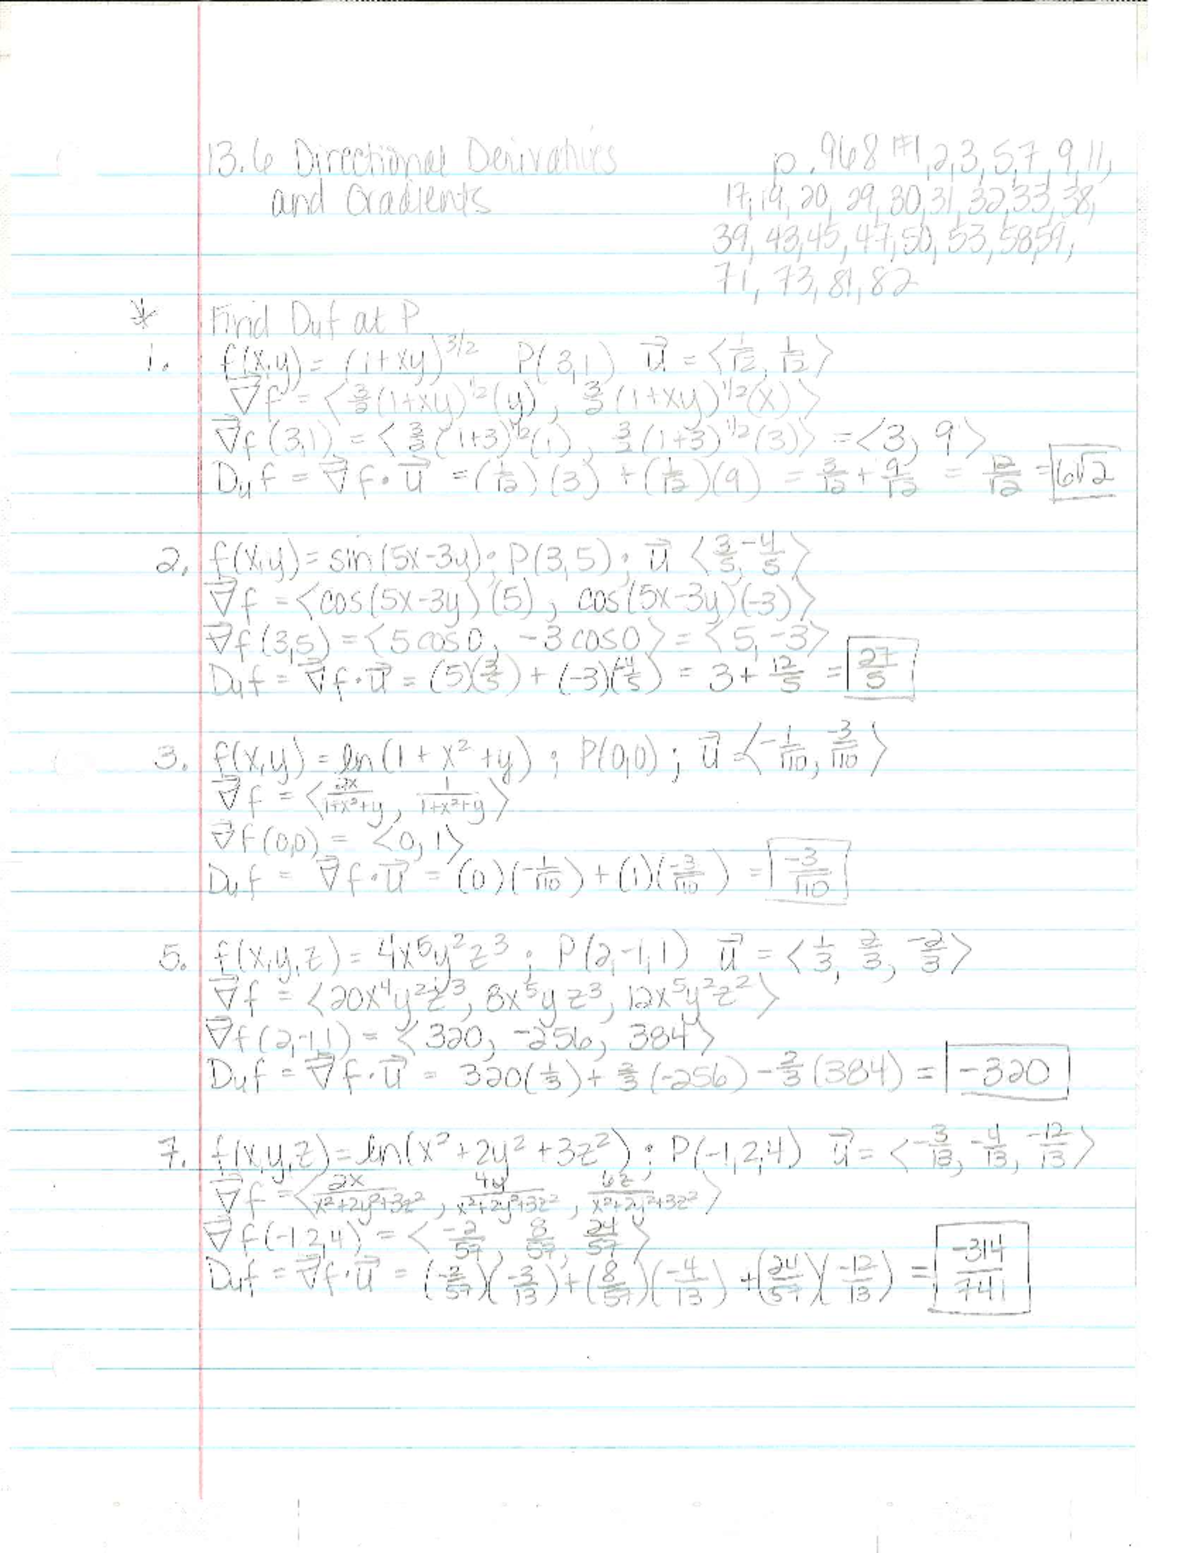 13.6 Directional Derivatives p. 968 #1,2,3,5,7,9,11,
and Gradients 17,19,20,29,30,31,32,33,38,
39,43,45,47,50,53,58,59,
71,73,81,82
* Find Duf at P
1. f(x,y) = (1+xy)^{3/2} P(3,1) u⃗ = ⟨1/√2, 1/√2⟩
∇⃗f = ⟨3/2(1+xy)^{1/2}(y), 3/2(1+xy)^{1/2}(x)⟩
∇⃗f(3,1) = ⟨3/2(1+3)^{1/2}(1), 3/2(1+3)^{1/2}(3)⟩ = ⟨3, 9⟩
Duf = ∇⃗f·u⃗ = (1/√2)(3) + (1/√2)(9) = 3/√2 + 9/√2 = 12/√2 = 6√2
2. f(x,y) = sin(5x-3y); P(3,5); u⃗ ⟨3/5, -4/5⟩
∇⃗f = ⟨cos(5x-3y)(5), cos(5x-3y)(-3)⟩
∇⃗f(3,5) = ⟨5cos0, -3cos0⟩ = ⟨5,-3⟩
Duf = ∇⃗f·u⃗ = (5)(3/5) + (-3)(-4/5) = 3 + 12/5 = 27/5
3. f(x,y) = ln(1+x²+y); P(0,0); u⃗ = ⟨-1/√10, -3/√10⟩
∇⃗f = ⟨2x/1+x²+y, 1/1+x²+y⟩
∇⃗f(0,0) = ⟨0,1⟩
Duf = ∇⃗f·u⃗ = (0)(-1/√10) + (1)(-3/√10) = -3/√10
5. f(x,y,z) = 4x⁵y²z³; P(2,-1,1) u⃗ = ⟨1/3, 2/3, -2/3⟩
∇⃗f = ⟨20x⁴y²z³, 8x⁵yz³, 12x⁵y²z²⟩
∇⃗f(2,-1,1) = ⟨320, -256, 384⟩
Duf = ∇⃗f·u⃗ = 320(1/3) + 2/3(-256) - 2/3(384) = -320
7. f(x,y,z) = ln(x²+2y²+3z²); P(-1,2,4) u⃗ = ⟨-3/13, -4/13, -12/13⟩
∇⃗f = ⟨2x/x²+2y²+3z², 4y/x²+2y²+3z², 6z/x²+2y²+3z²⟩
∇⃗f(-1,2,4) = ⟨-2/57, 8/57, 24/57⟩
Duf = ∇⃗f·u⃗ = (-2/57)(-3/13) + (8/57)(-4/13) + (24/57)(-12/13) = -314/741